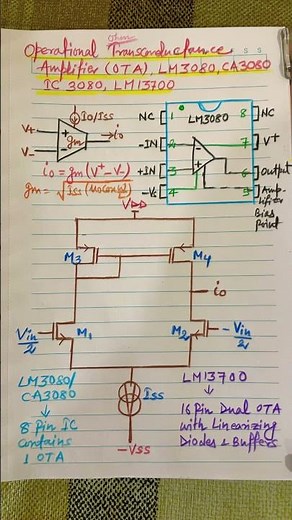 Ohms
Operational Transconductance
Amplifier (OTA), LM3080, CA3080
IC 3080, LM13700
IO/ISS
V+
V-
+
-
gm
io
io = gm(V+ - V-)
NC 1
-IN 2
+IN 3
-Vs 4
LM3080
8 NC
7 V+
6 Output
5 Amplifier
Bias
Point
VDD
M3
M4
io
Vin/2
M1
M2
-Vin/2
ISS
-VSS
LM3080/
CA3080
↓
8 Pin IC
contains
1 OTA
LM13700
↓
16 Pin Dual OTA
with Linearizing
Diodes & Buffers